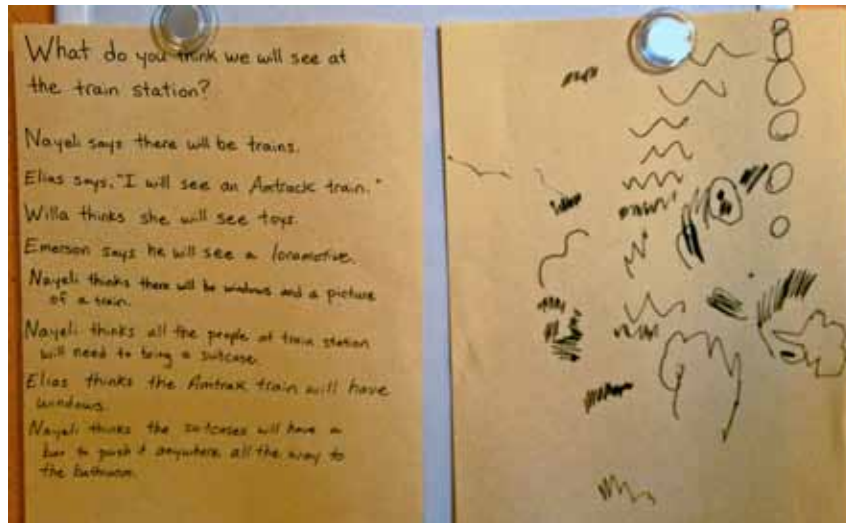 What do you think we will see at
the train station?
Nayeli says there will be trains.
Elias says, "I will see an Amtrack train."
Willa thinks she will see toys.
Emerson says he will see a locomotive.
Nayeli thinks there will be windows and a picture
of a train.
Nayeli thinks all the people at train station
will need to bring a suitcase.
Elias thinks the Amtrak train will have
windows.
Nayeli thinks the suitcases will have a
bar to push it anywhere all the way to
the bathroom.